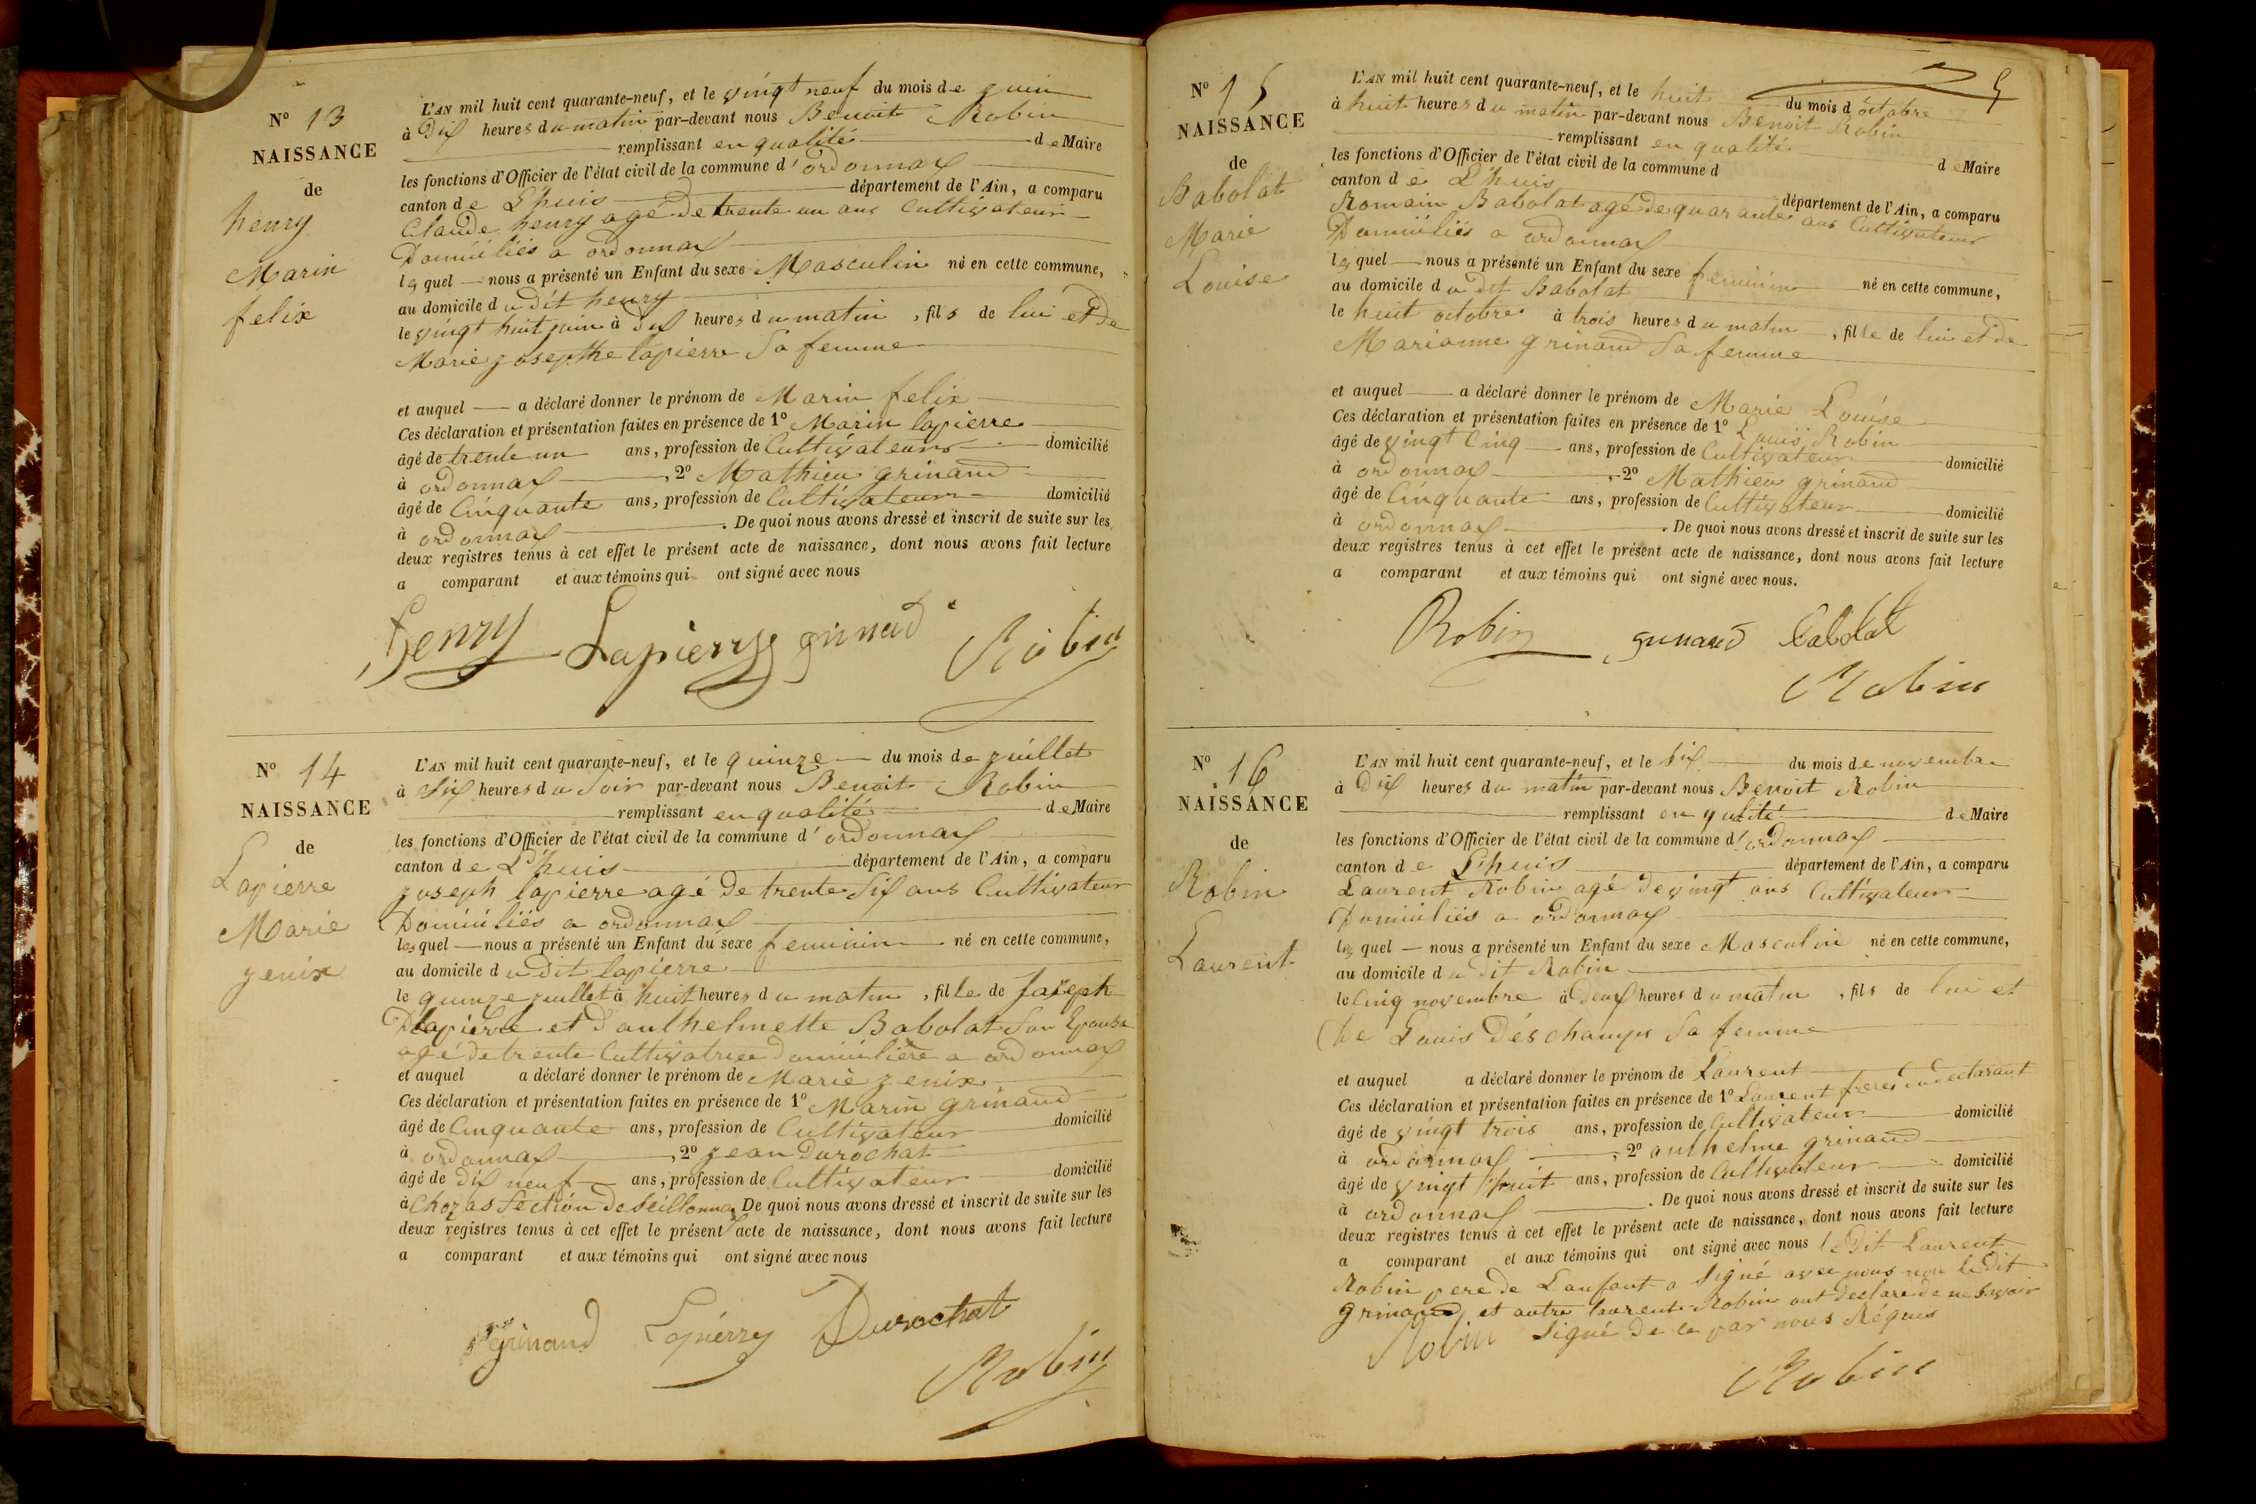 N° 13
NAISSANCE
de
henry
Marin
felix
L'AN mil huit cent quarante-neuf, et le vingt neuf du mois de juin
à Dix heures du matin par-devant nous Benoit Robin
remplissant en qualité de Maire
les fonctions d'Officier de l'état civil de la commune d'ordonnax
canton de L'huis département de l'Ain, a comparu
Claude henry agé de trente un ans Cultivateur
Domiciliés a ordonnax
lequel nous a présenté un Enfant du sexe Masculin né en cette commune,
au domicile du dit henry
le vingt huit juin à dix heures du matin, fils de lui et de
Marie josephte lapierre Sa femme
et auquel a déclaré donner le prénom de Marin felix
Ces déclaration et présentation faites en présence de 1° Marin lapierre
âgé de trente un ans, profession de Cultivateur domicilié
à ordonnax, 2° Mathieu grinand
âgé de Cinquante ans, profession de Cultivateur domicilié
à ordonnax. De quoi nous avons dressé et inscrit de suite sur les
deux registres tenus à cet effet le présent acte de naissance, dont nous avons fait lecture
a comparant et aux témoins qui ont signé avec nous
henry Lapierre grinand Robin
N° 14
NAISSANCE
de
Lapierre
Marie
jenix
L'AN mil huit cent quarante-neuf, et le quinze du mois de juillet
à Six heures du Soir par-devant nous Benoit Robin
remplissant en qualité de Maire
les fonctions d'Officier de l'état civil de la commune d'ordonnax
canton de L'huis département de l'Ain, a comparu
joseph lapierre agé de trente Six ans Cultivateur
Domiciliés a ordonnax
lequel nous a présenté un Enfant du sexe feminin né en cette commune,
au domicile du dit lapierre
le quinze juillet à huit heures du matin, fille de Joseph
Lapierre et d'anthelmette Babolat Son Epouse
agé de trente Cultivatrice domicilière a ordonnax
et auquel a déclaré donner le prénom de Marie jenix
Ces déclaration et présentation faites en présence de 1° Marin grinand
âgé de Cinquante ans, profession de Cultivateur domicilié
à ordonnax, 2° jean Durochat
âgé de dix neuf ans, profession de Cultivateur domicilié
à Chozas Section de Seillonnaz De quoi nous avons dressé et inscrit de suite sur les
deux registres tenus à cet effet le présent acte de naissance, dont nous avons fait lecture
a comparant et aux témoins qui ont signé avec nous
grinand Lapierre Durochat
Robin
5
N° 15
NAISSANCE
de
Babolat
Marie
Louise
L'AN mil huit cent quarante-neuf, et le huit du mois d octobre
à huit heures du matin par-devant nous Benoit Robin
remplissant en qualité de Maire
les fonctions d'Officier de l'état civil de la commune d
canton de L'huis département de l'Ain, a comparu
Romain Babolat agé de quarante ans Cultivateur
Domiciliés a ordonnax
lequel nous a présenté un Enfant du sexe feminin né en cette commune,
au domicile du dit Babolat
le huit octobre à trois heures du matin, fille de lui et de
Marianne grinand Sa femme
et auquel a déclaré donner le prénom de Marie Louise
Ces déclaration et présentation faites en présence de 1° Louis Robin
âgé de vingt Cinq ans, profession de Cultivateur domicilié
à ordonnax, 2° Mathieu grinand
âgé de Cinquante ans, profession de Cultivateur domicilié
à ordonnax. De quoi nous avons dressé et inscrit de suite sur les
deux registres tenus à cet effet le présent acte de naissance, dont nous avons fait lecture
a comparant et aux témoins qui ont signé avec nous.
Robin grinand babolat
Robin
N° 16
NAISSANCE
de
Robin
Laurent
L'AN mil huit cent quarante-neuf, et le Six du mois de novembre
à Dix heures du matin par-devant nous Benoit Robin
remplissant en qulité de Maire
les fonctions d'Officier de l'état civil de la commune d'ordonnax
canton de L'huis département de l'Ain, a comparu
Laurent Robin agé de vingt ans Cultivateur
Domiciliés a ordonnax
lequel nous a présenté un Enfant du sexe Masculin né en cette commune,
au domicile du dit Robin
le Cinq novembre à Deux heures du matin, fils de lui et
de Louis déschamps Sa femme
et auquel a déclaré donner le prénom de Laurent
Ces déclaration et présentation faites en présence de 1° Laurent frere du declarant
âgé de vingt trois ans, profession de Cultivateur domicilié
à ordonnax, 2° anthelme grinand
âgé de vingt huit ans, profession de Cultivateur domicilié
à ordonnax. De quoi nous avons dressé et inscrit de suite sur les
deux registres tenus à cet effet le présent acte de naissance, dont nous avons fait lecture
a comparant et aux témoins qui ont signé avec nous le Dit Laurent
Robin pere de Lanfant a Signé avec nous non le dit
grinand, et autre laurent Robin ont declare de ne Savoir
Robin Signé de ce par nous Réquis
Robin